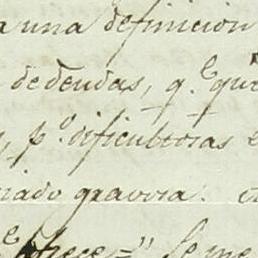 a una definicion
de deudas, q.e que
, p.o dificultosas e
riado gravosa.
ofrece =" Se me